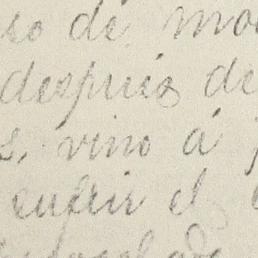 so de mo
despues de
s, vino á
sufrir el